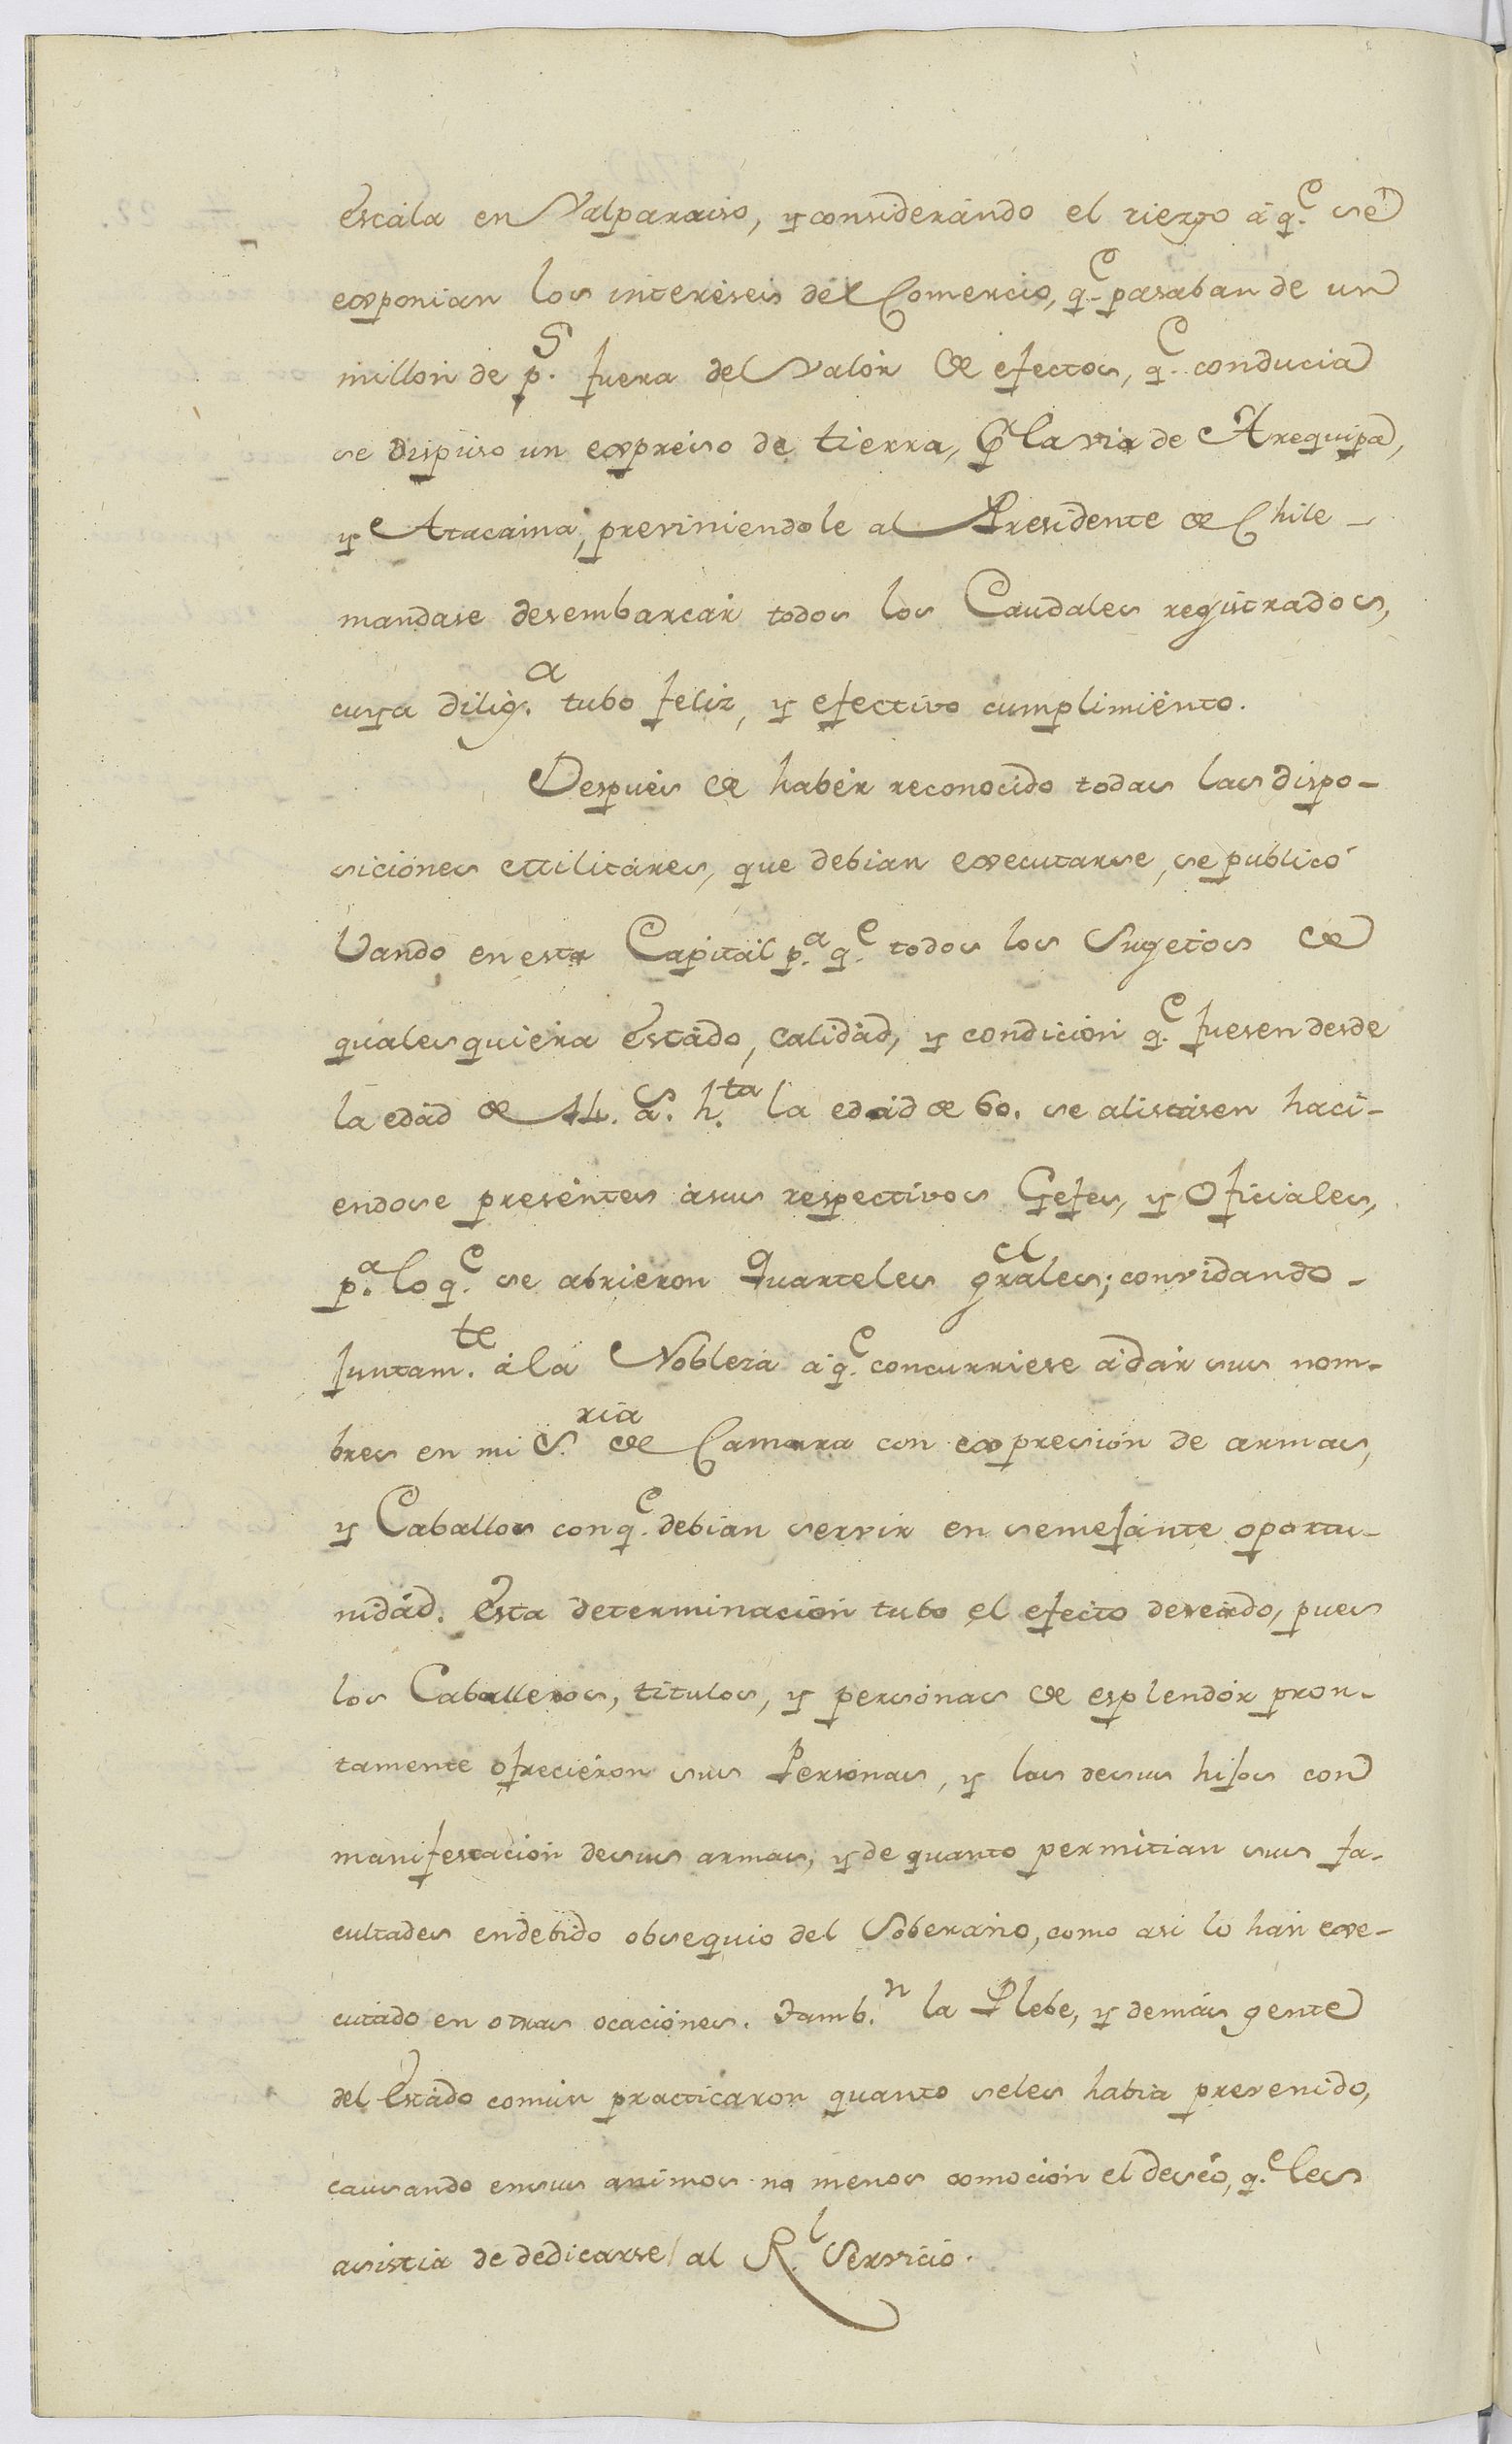 escála en Valparaiso, y considerándo el riezgo á q.e se
exponian los interéses del Comercio, q.e pasaban de un
millon de p.s fuera del valór de efectos, q.e conducia
se dispúso un expreso de tierra, p.r la via de Arequipa,
y Atacama, previniendole al Presidente de Chile -
mandase desembarcár todos los Caudales registrados,
cuya dilig.a tubo feliz, y efectivo cumplimiénto.
Despues de habér reconocido todas las dispo-
siciónes Militáres, que debian executarse, se publicó
Vando en esta Capitál p.a q.e todos los Sugetos de
quales quiéra Estádo, calidád, y condicion q.e fuesen desde
la edád de 14. a.s h.ta la edád de 60. se alistásen haci-
endose preséntes á sus respectivos Gefes, y Oficiales,
p.a lo q.e se abrieron Quarteles grales; convidando -
juntam.te á la Nobleza á q.e concurriese á dár sus nom-
bres en mi S.ria de Camara con expresión de armas,
y Caballos con q.e debian servir en semejánte oportu-
nidád. Esta determinación tubo el efecto deseádo, pues
los Caballeros, titulos, y persónas de esplendór pron-
tamente ofreciéron sus Personas, y las de sus hijos con
manifestación de sus armas, y de quanto permitian sus fa-
cultades en debido obsequio del Soberáno, como asi lo hán exe-
cutádo en otras ocaciónes. Tamb.n la Plebe, y demás gente
del Estádo comun practicaron quanto seles habia prevenido,
causando en sus animos no menos comoción el deséo, q.e les
asistia de dedicarse al R.l Servicio.